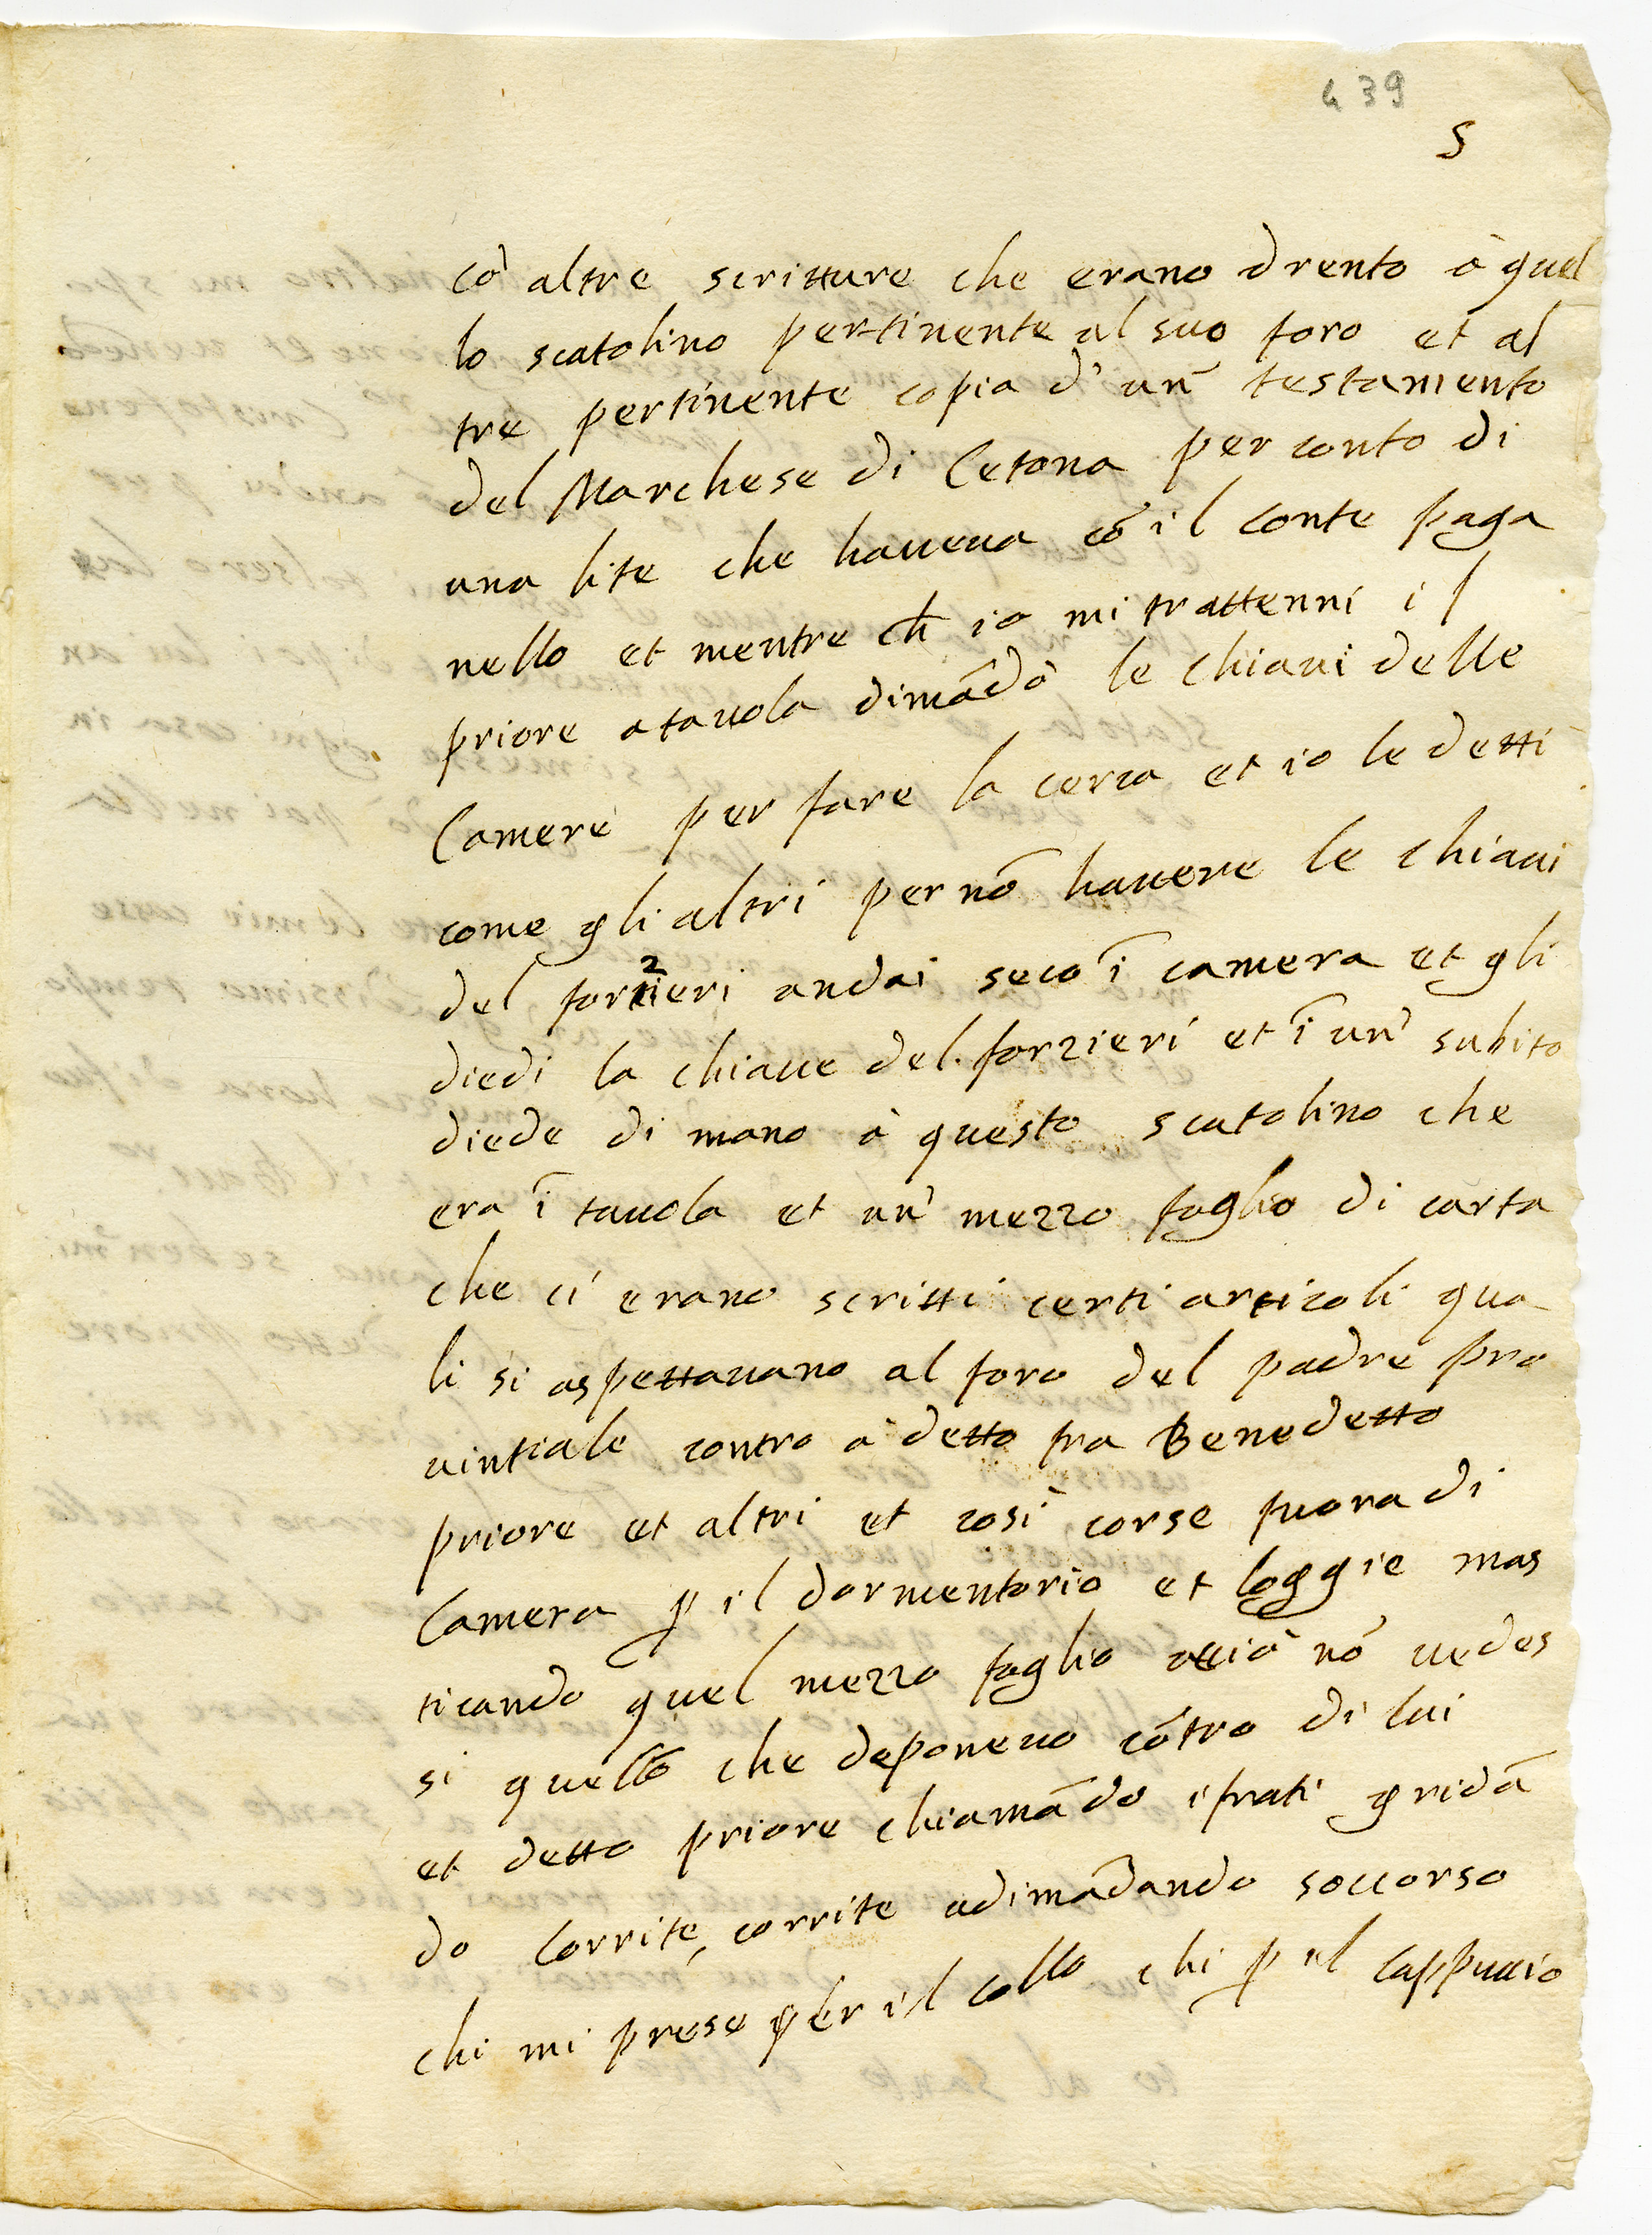 439
5
cō altre scritture che erano drento à quel
lo scatolino pertinente al suo foro et al
tre pertinente copia d'un testamento
del Marchese di Cetona per conto di
una lite che haueua cō il conte paga
nello et mentre ch̄ io mi trattenni il
priore a tauola dimādò le chiaui delle
Camere per fare la cerca et io le detti
come gli altri per nō hauere le chiaui
del forzieri andai seco ī camera et gli
diedi la chiaue del forzieri et ī un subito
diede di mano à questo scatolino che
era ī tauola et un mezzo foglio di carta
che ci erano scritti certi articoli qua
li si aspettauano al foro del padre pro
uintiale contro à detto fra Benedetto
priore et altri et cosi corse fuora di
Camera ꝑ il dormentorio et loggie mas
ticando quel mezzo foglio acciò nō uedes
si quello che deponeuo cōtro di lui
et detto priore chiamādo i frati gridā
do Corrite, corrite adimādando soccorso
chi mi prese per il collo chi ꝑ il cappuccio